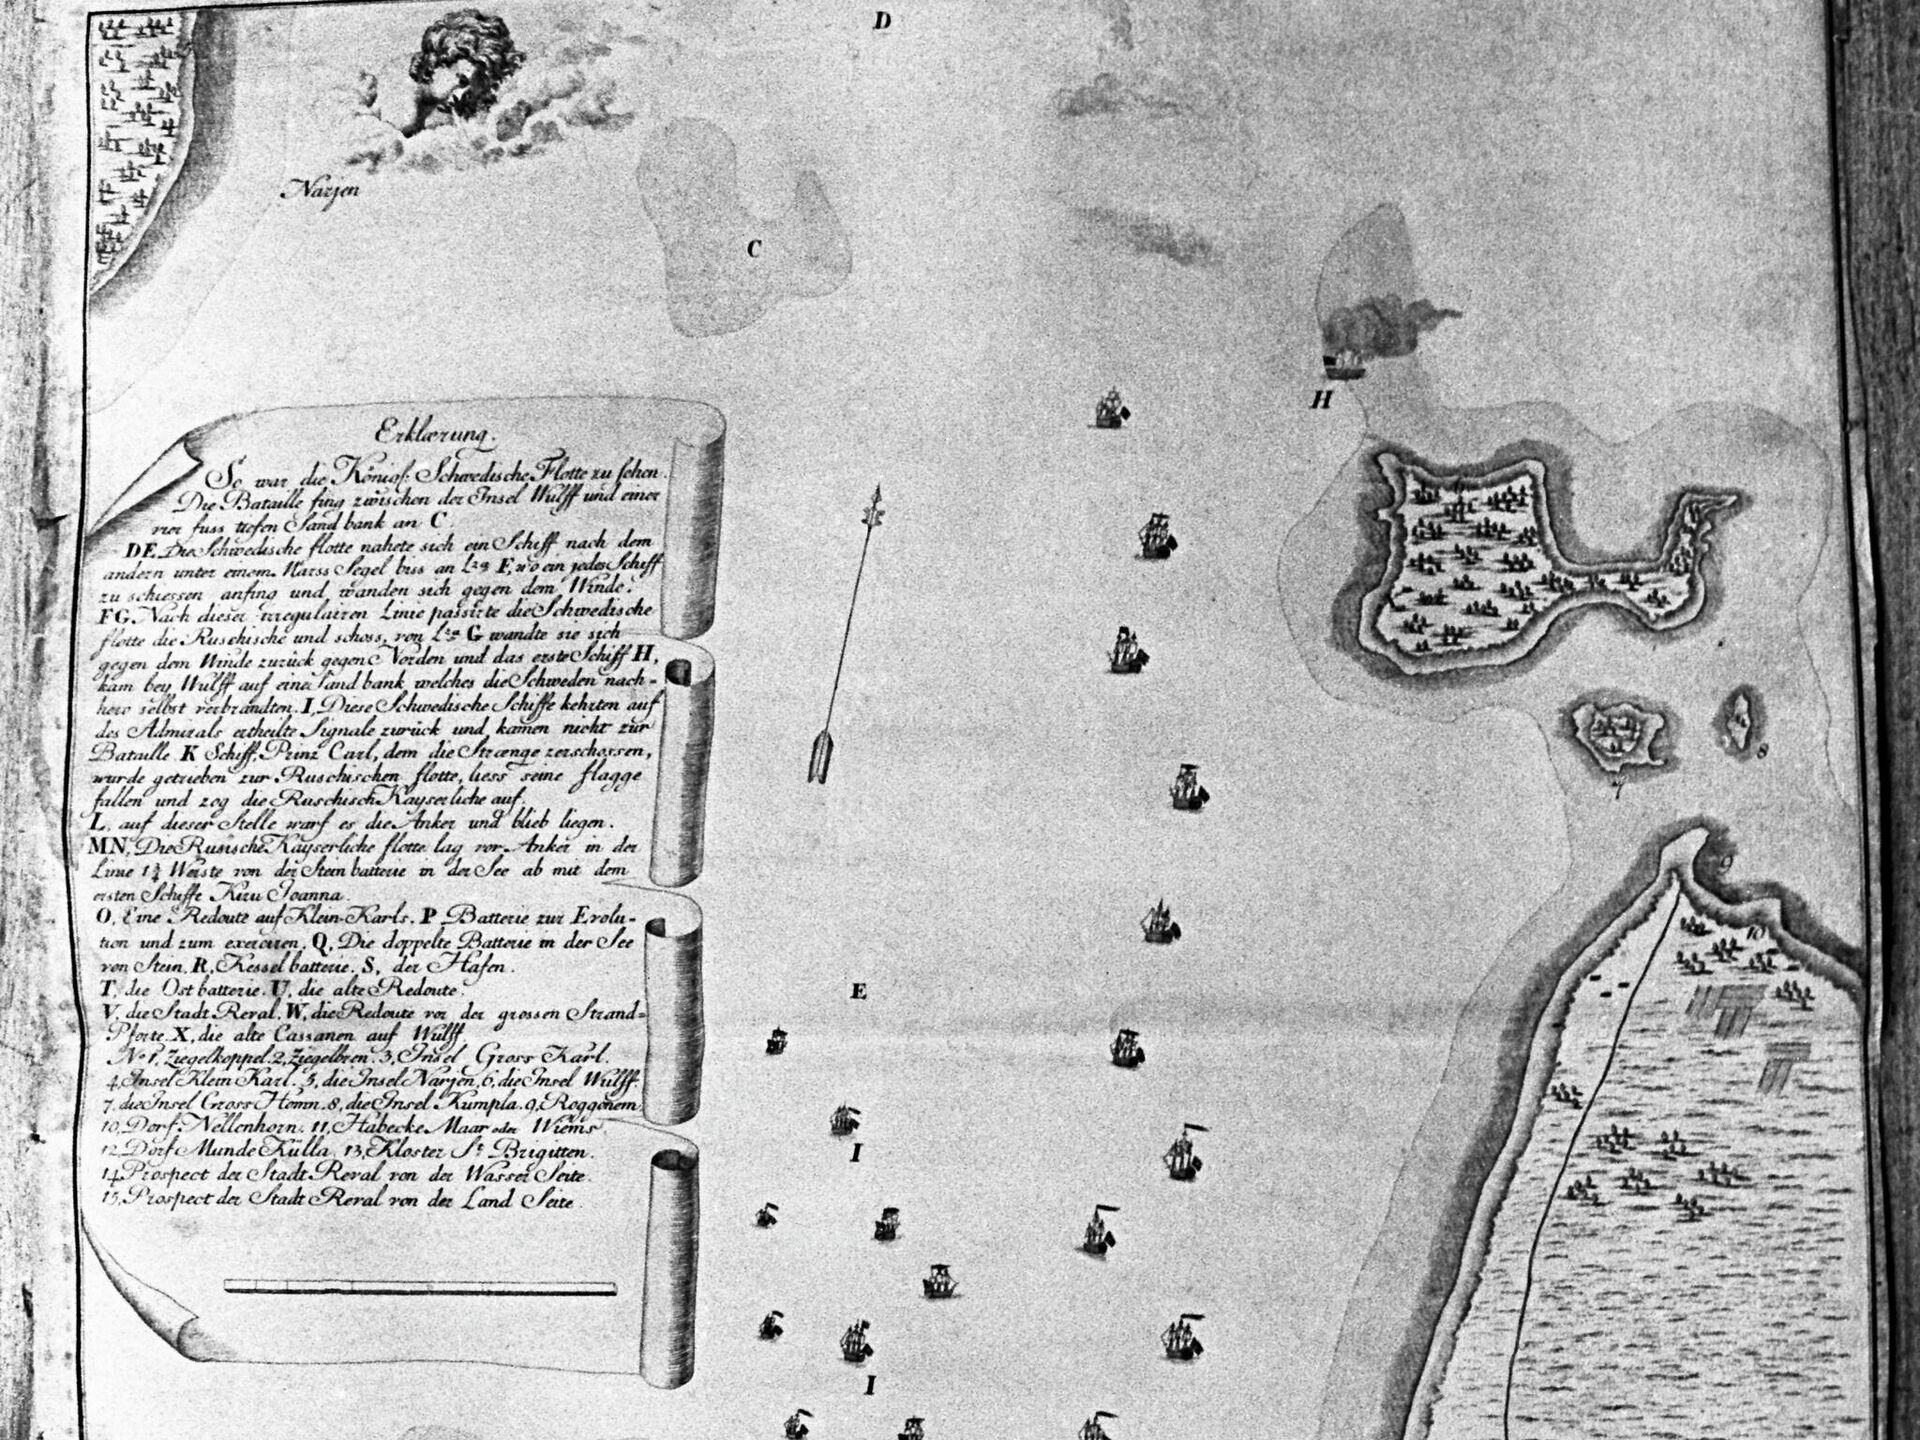 D
Narjen
C
H
Erklærung.
So war die Königl: Schwedische Flotte zu sehen.
Die Bataille fing zwischen der Insel Wulff und einer
vier fuss tiefen Sandbank an C.
DE, Die Schwedische flotte nahete sich ein Schiff nach dem
andern unter einem Marss Segel biss an F, wo ein jedes Schiff
zu schiessen anfing und wanden sich gegen dem Winde.
FG. Nach dieser irregulairen Linie passirte die Schwedische
flotte die Ruschische und schoss, von G wandte sie sich
gegen dem Winde zurück gegen Norden und das erste Schiff H,
kam bey Wulff auf eine Sandbank welches die Schweden nach-
hero selbst verbrandten. I, Diese Schwedische Schiffe kehrten auf
des Admirals ertheilte Signale zurück und kamen nicht zur
Bataille. K Schiff, Prinz Carl, dem die Strænge zerschossen,
wurde getrieben zur Ruschischen flotte, liess seine flagge
fallen und zog die Ruschisch Kayserliche auf.
L, auf dieser Stelle warf es die Anker und blieb liegen.
MN, Die Rusische Kayserliche flotte lag vor Anker in der
Linie 1¾ Werste von der Steinbatterie in der See ab mit dem
ersten Schiffe Kizu Joanna.
O, Eine Redoute auf Klein-Karls. P Batterie zur Evolu-
tion und zum exerciren. Q, Die doppelte Batterie in der See
von Stein. R, Kessel batterie. S, der Hafen.
T, die Ost batterie. U, die alte Redoute.
V, die Stadt Reval. W, die Redoute vor der grossen Strand=
Pforte. X, die alte Cassanen auf Wulff.
No 1, Ziegelkoppel. 2, Ziegelbren. 3, Insel Gross Karl.
4, Insel Klein Karl. 5, die Insel Narjen, 6, die Insel Wulff.
7, die Insel Gross Homn. 8, die Insel Kumpla. 9, Roggonem
10, Dorf: Nellenhorn. 11, Habecke Maar oder Wiems.
12, Dorf Munde Külla. 13, Kloster St Brigitten.
14, Prospect der Stadt Reval von der Wasser Seite.
15, Prospect der Stadt Reval von der Land Seite.
6
7
8
9
10
E
I
I